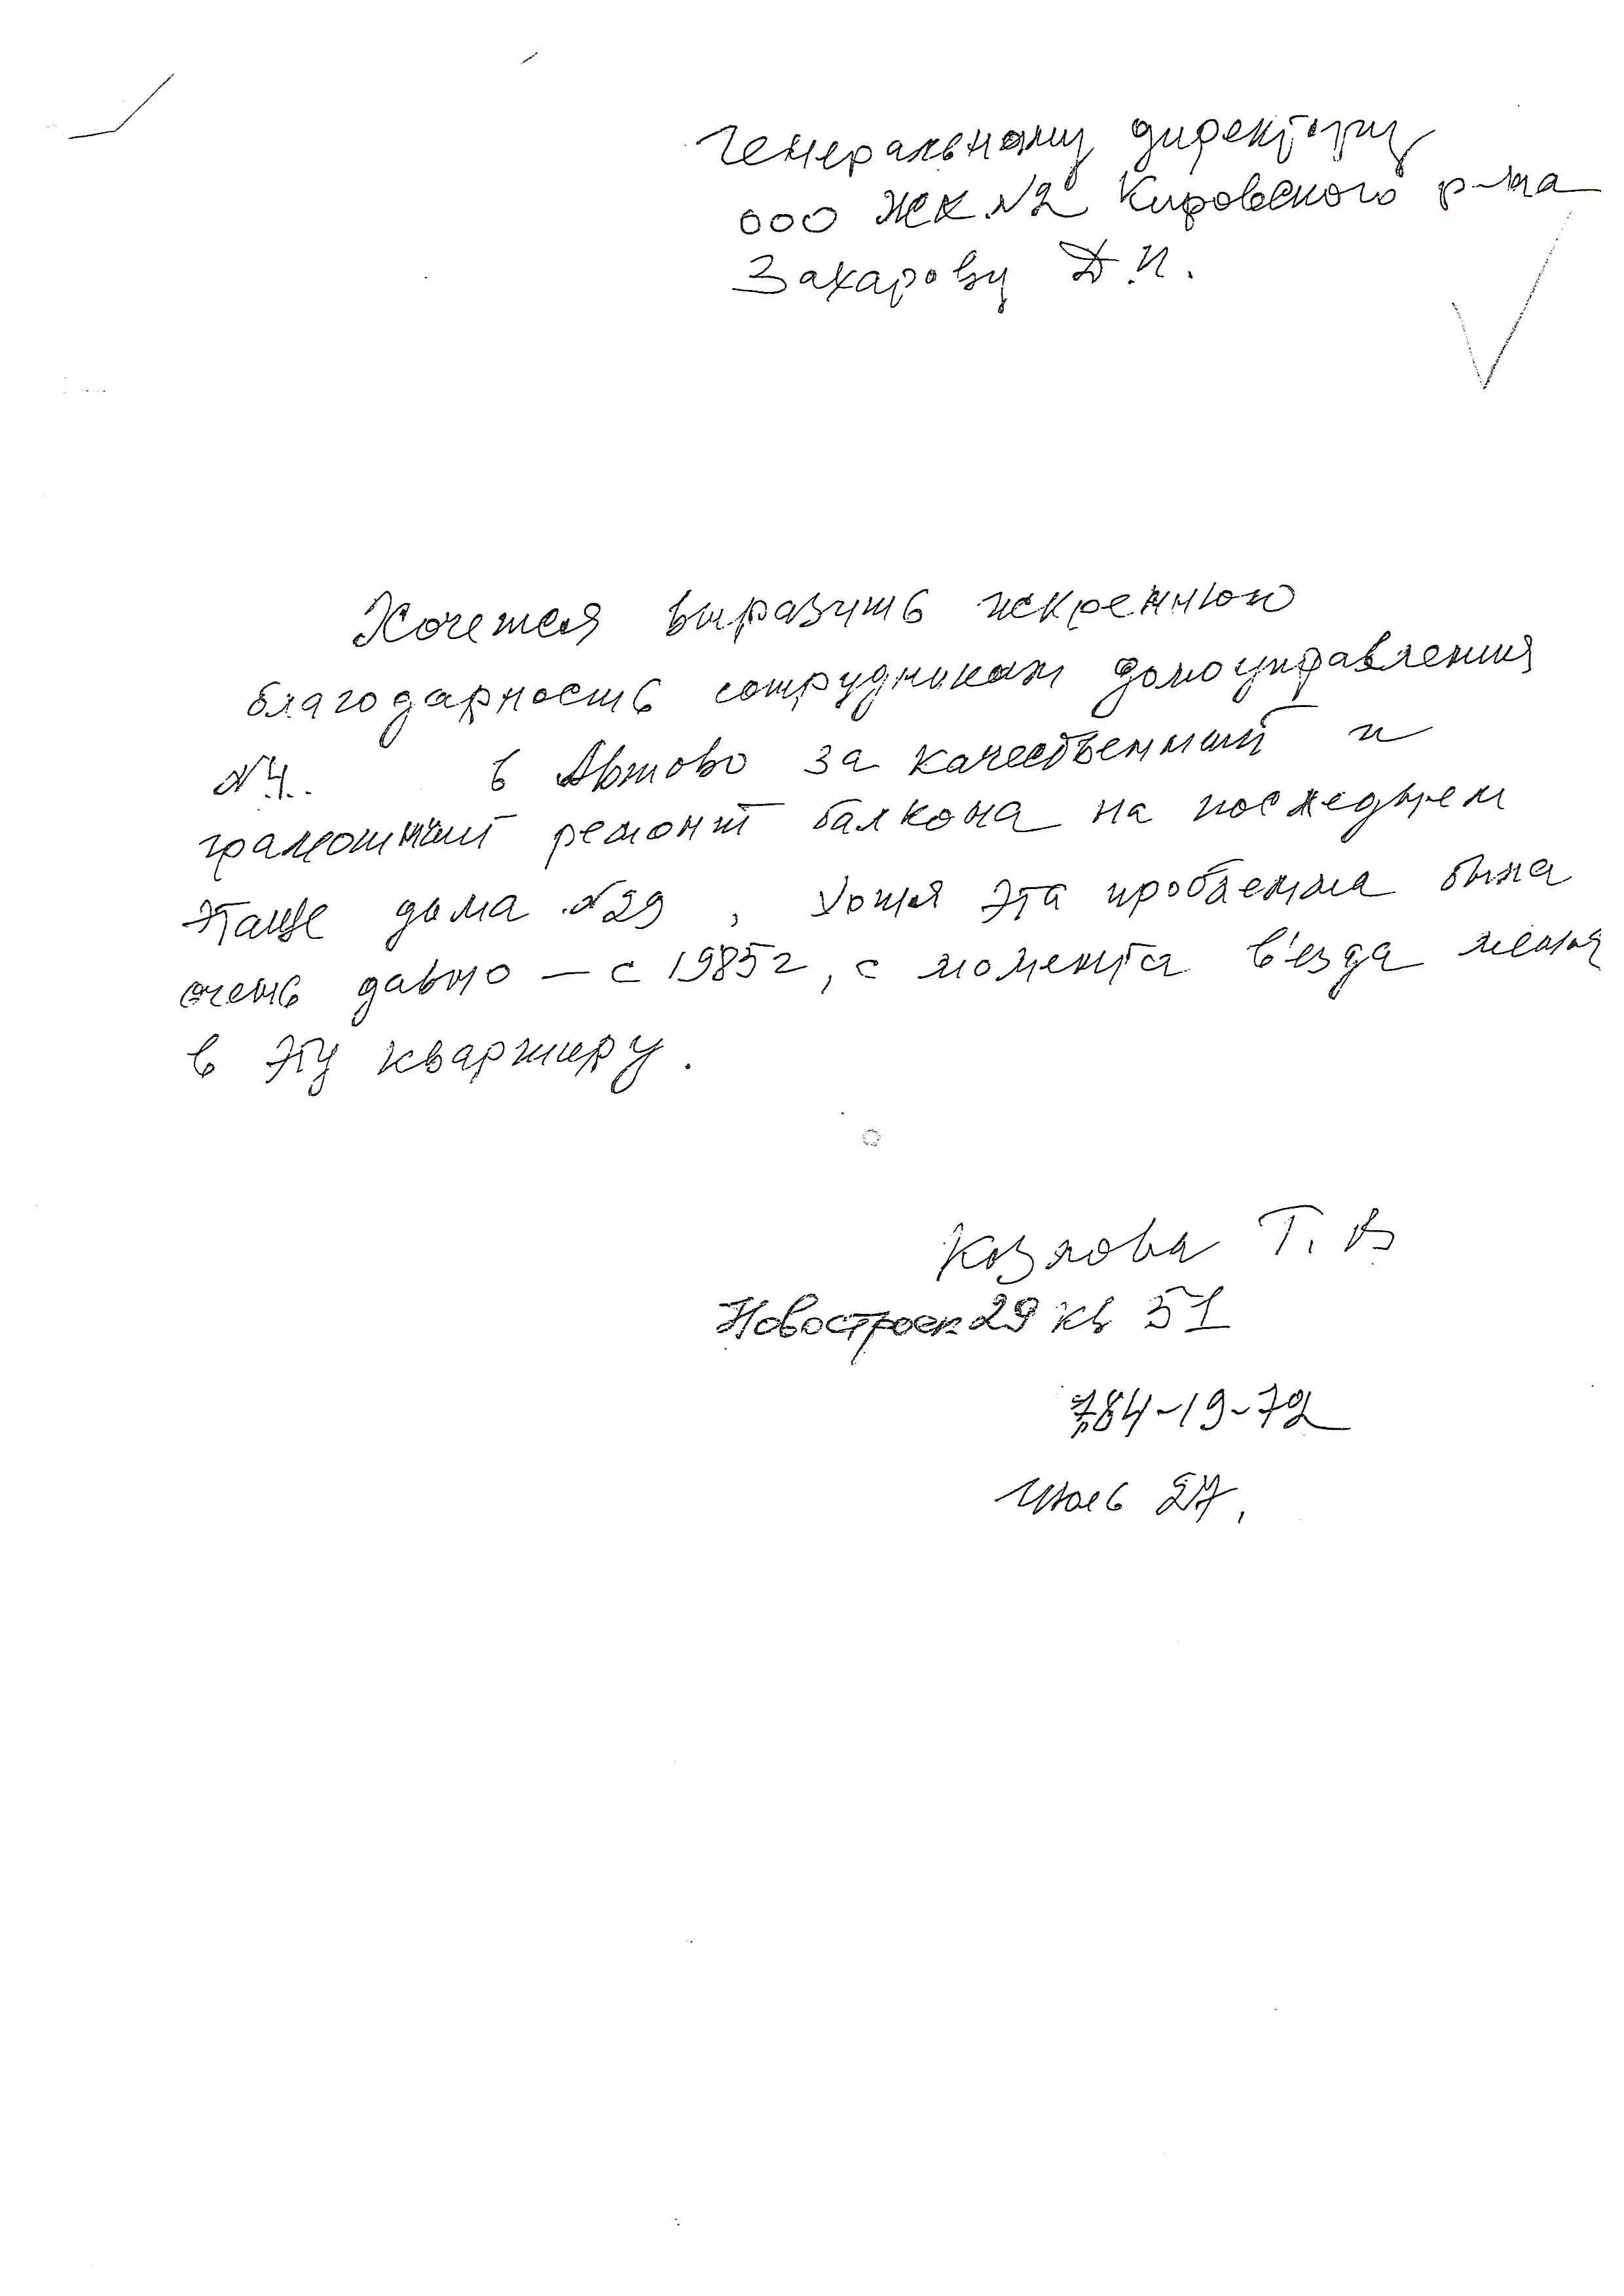 Генеральному директору
ООО ЖК №2 Кировского р-на
Захарову Д.И.
Хочется выразить искреннюю
благодарность сотрудникам домоуправления
№4. в Автово за качественный и
грамотный ремонт балкона на последнем
этаже дома №29, хотя эта проблемма была
очень давно – с 1985г, с момента в'езда меня
в эту квартиру.
Козлова Т.В
Новостроек 29 кв 51
784-19-72
Июль 27.